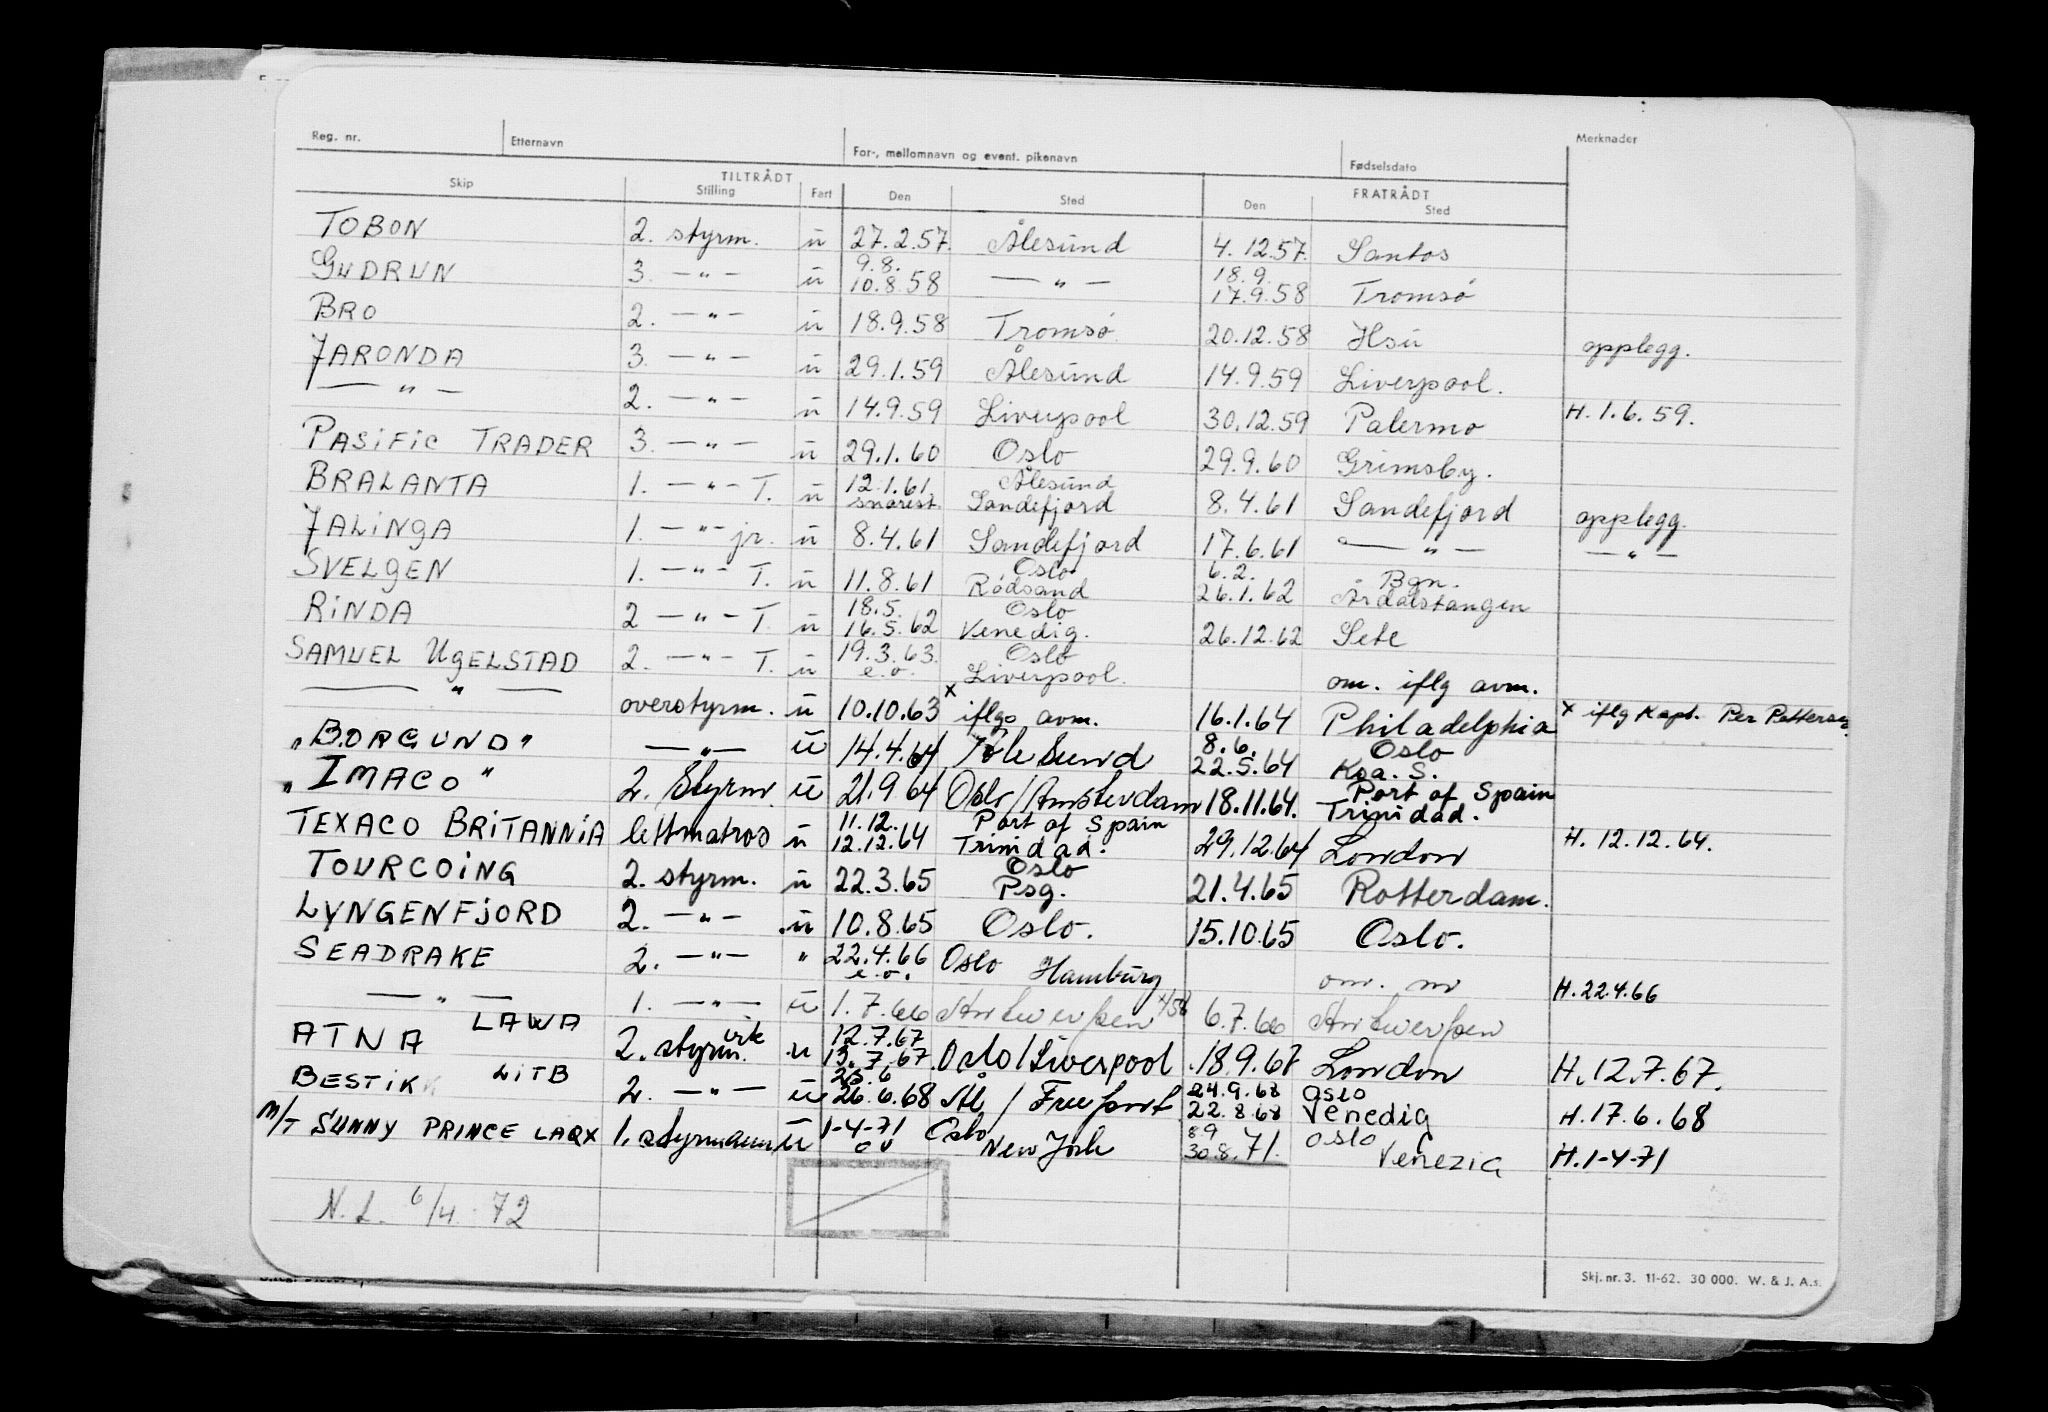 Reg. nr. Etternavn For-, mellomnavn og event. pikenavn Fødselsdato Merknader
TILTRÅDT FRATRÅDT
Skip Stilling Fart Den Sted Den Sted
TOBON 2. styrm. u 27.2.57. Ålesund 4.12.57. Santos
GUDRUN 3. —"— u 9.8. 10.8.58 —"— 18.9. 17.9.58 Tromsø
BRO 2. —"— u 18.9.58 Tromsø 20.12.58 Hsu opplegg.
JARONDA 3. —"— u 29.1.59 Ålesund 14.9.59 Liverpool.
—"— 2. —"— u 14.9.59 Liverpool 30.12.59 Palermo H. 1.6.59.
PASIFIC TRADER 3. —"— u 29.1.60 Oslo 29.9.60 Grimsby.
BRALANTA 1. —"— T. u 12.1.61 snarest. Ålesund Sandefjord 8.4.61 Sandefjord opplegg.
JALINGA 1. —"— jr. u 8.4.61 Sandefjord 17.6.61 —"— —"—
SVELGEN 1. —"— T. u 11.8.61 Oslo Rødsand 6.2. 26.1.62 Bgn. Årdalstangen
RINDA 2 —"— T. u 18.5. 16.5.62 Oslo Venedig. 26.12.62 Sete
SAMUEL UGELSTAD 2. —"— T. u 19.3.63. e.o. Oslo Liverpool. om. iflg avm.
—"— overstyrm. u 10.10.63 x iflgs avm. 16.1.64 Philadelphia x iflg Kapt. Per Pettersen
"BORGUND" —"— u 14.4.64 Ålesund 8.6. 22.5.64 Oslo Kra. S.
"IMACO" 2. Styrm. u 21.9.64 Oslo/Amsterdam 18.11.64. Port of Spain Trinidad.
TEXACO BRITANNIA lettmatros u 11.12. 12.12.64 Port of Spain Trinidad. 29.12.64 London H. 12.12.64.
TOURCOING 2. styrm. u 22.3.65 Oslo Psg. 21.4.65 Rotterdam.
LYNGENFJORD 2. —"— u 10.8.65 Oslo. 15.10.65 Oslo.
SEADRAKE 2. —"— " 22.4.66 e.o. Oslo Hamburg om. nr H. 22.4.66
—"— 1. —"— u 1.7.66 Antwerpen 6.7.66 Antwerpen
ATNA LAWA 2. styrm. u 12.7.67 13.7.67. Oslo/Liverpool 18.9.67 London H. 12.7.67.
BESTIK LITB 2. —"— u 25.6 26.6.68 Ål / Freeport 24.9.68 22.8.68 Oslo Venedig H. 17.6.68
M/T SUNNY PRINCE LAQX 1. styrmann u 1-4-71 ov Oslo New York 8.9 30.8.71. Oslo Venezia H. 1-4-71
N.L. 6/4 72
Skj. nr. 3. 11-62. 30 000. W. & J. A.s.